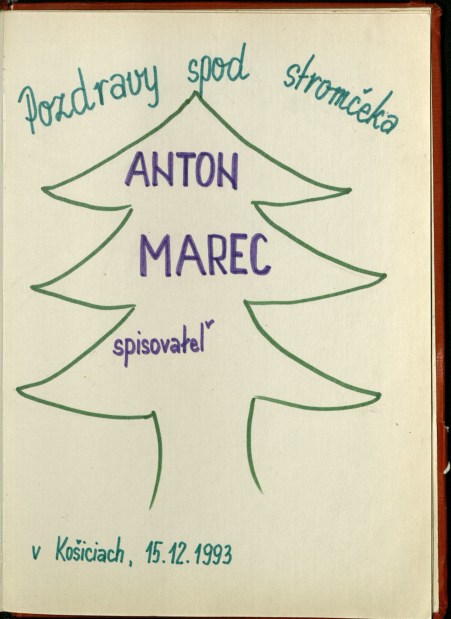 Pozdravy spod stromčeka
ANTON
MAREC
spisovateľ
v Košiciach, 15.12.1993